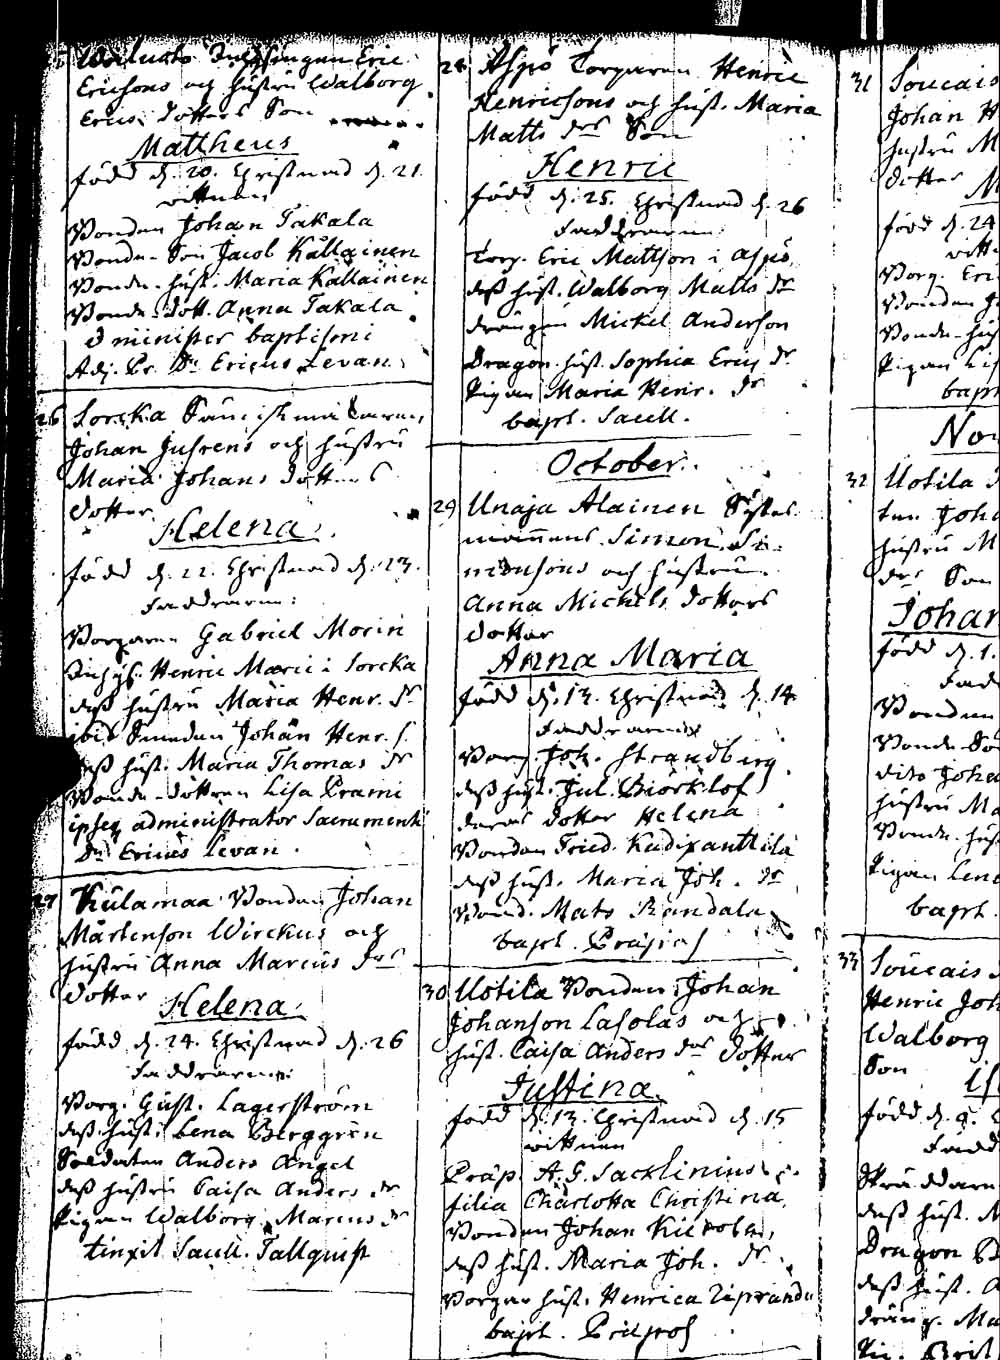 Ericsons och hustru Walborg
Erics dotters Son
Mattheus
född d. 20. Christnad d. 21.
vittnen
Bonden Johan Takala
Bonde-Son Jacob Kallainen
Bonde-hust. Maria Kallainen
Bonde-dott. Anna Takala
minister baptismi
Adj. Pr. Dn Ericus Levan
26 Sorcka
Johan och hustru
Maria Johans dotters
dotter
Helena
född d. 22. Christnad d. 23.
Faddrarne:
Borgaren Gabriel Morin
Inhys. Henric Marci i Sorcka
dess hustru Maria Henr. dr
ibid Smeden Johan Henr. s.
dess hust. Maria Thomas dr
Bonde-dottren Lisa Prami
ipseq administrator Sacramenti
Dn Ericus Levan.
27 Kulamaa Bonden Johan
Mårtenson Wirckus och
hustru Anna Marcus drs
dotter
Helena
född d. 24. Christnad d. 26
Faddrarne:
Borg. Gust. Lagerström
dess hust. Lena Berggren
Soldaten Anders Angel
dess hustru Caisa Anders dr
Pigan Walborg Marcus dr
tinxit Sacell. Tallquist
28 Aspö Torparen Henric
Henricsons och hust. Maria
Matts drs Son
Henric
född d. 25. Christnad d. 26
Faddrarne:
Torp. Eric Mattson i Aspö,
dess hust. Walborg Matts dr
drängen Mickel Anderson
Dragon hust. Sophia Erics dr
Pigan Maria Henr. dr
bapt. Sacell.
October.
29 Unaja Alainen
Simon Si-
monsons och hustru
Anna Michels dotters
dotter
Anna Maria
född d. 13. Christnad d. 14
Faddrarne
Borg. Joh. Strandberg
dess hust. Jul. Biörklöf
deras dotter Helena
Bonden Fried. Kudixanttila
dess hust. Maria Joh. dr
Bond. Mats Randala
bapt. Præpos
30 Uotila Bonden Johan
Johanson Lasolas och
hust. Caisa Anders drs dotter
Justina
född d. 13. Christnad d. 15
vittnen
Præp. A. G. Sacklinius
filia Charlotta Christina
Bonden Johan
dess hust. Maria Joh. dr
Borgar hust. Henrica
bapt. Præpos
31 Soucais
Johan H
hustru M
dotter
M
född d. 24
vitt
Borg. Eri
Bonden J
Bonde-hus
Pigan Lis
bapt
Nov
32 Uotila
ten Joh
hustru M
drs Son
Johan
född d. 1.
Fad
Bonden
Bonde-So
dito Joha
hustru Ma
Bonde-hus
Pigan Lena
bapt.
33 Soucais
Henric Joh
Walborg
Son
född d. 9.
Fadd
Skräddaren
dess hust. M
Dragon
dess hust.
dräng. Ma